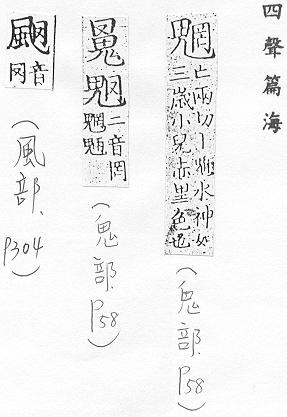 四聲篇海
魍
亡兩切丨魎水神如
三歲小兒赤黑色也
(鬼部.P58)
二音罔
(鬼部.P58)
音
网
(風部、P304)